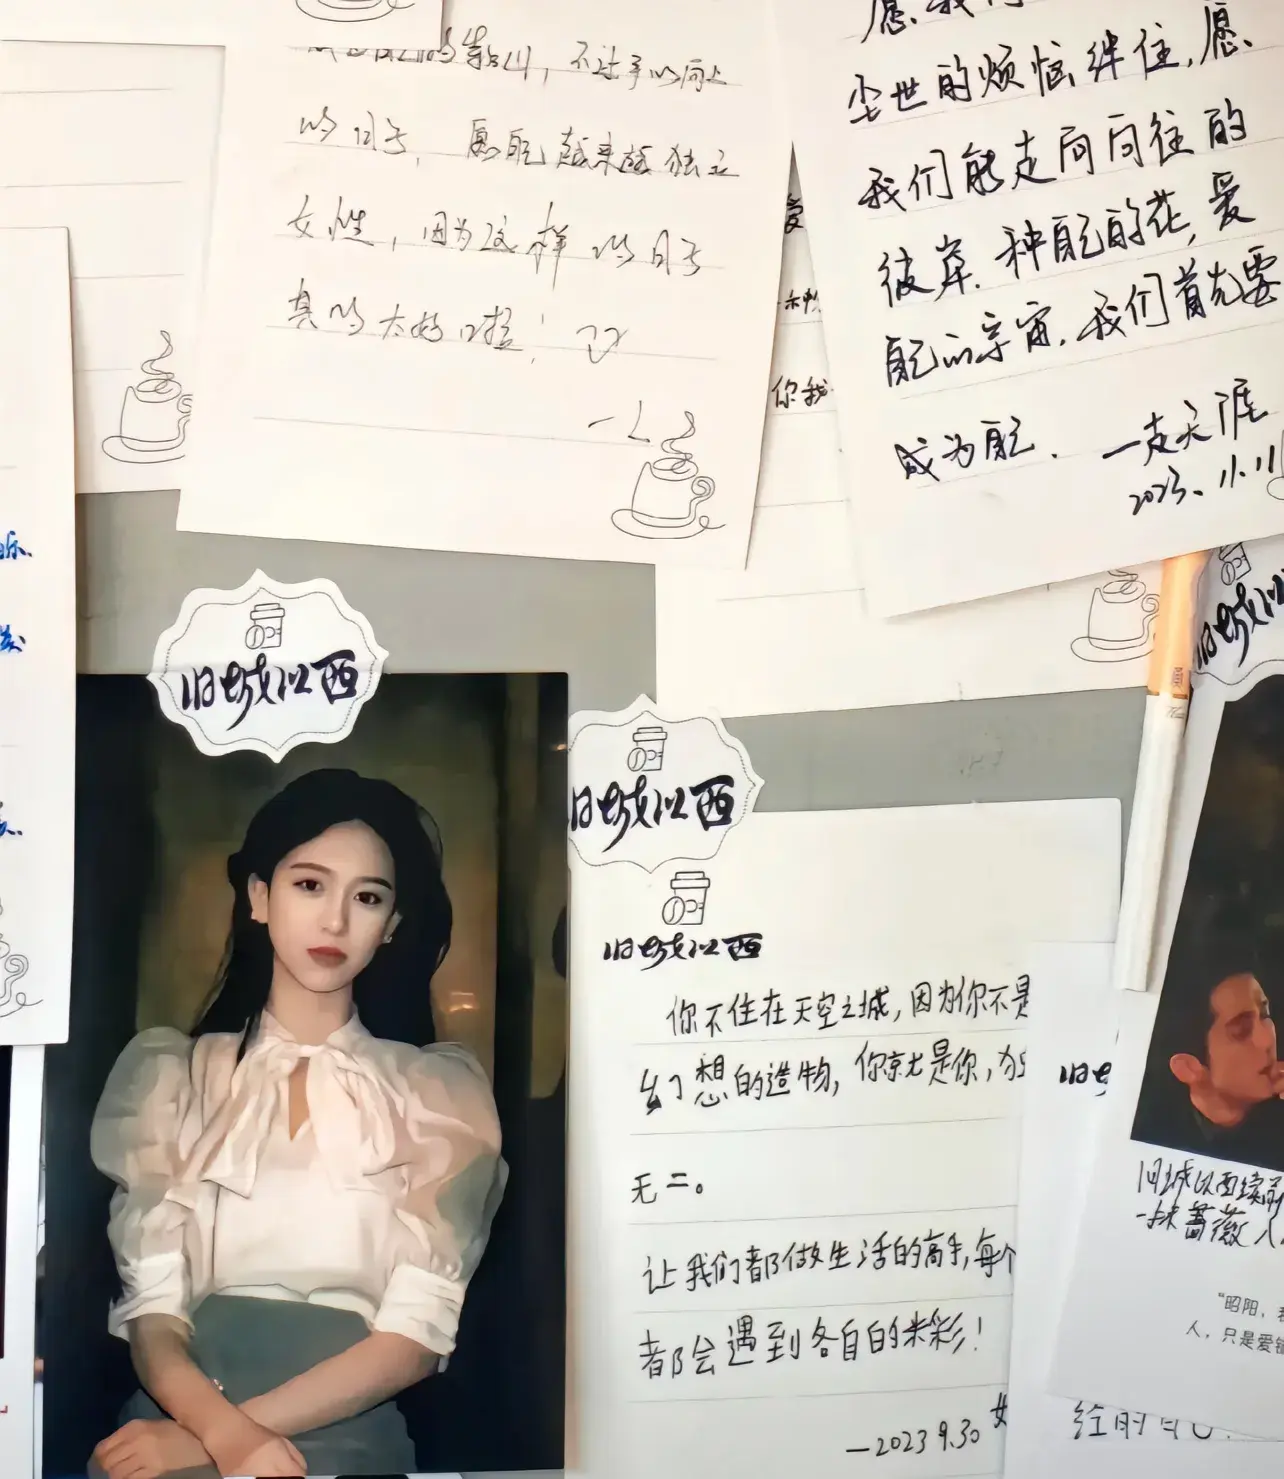 不过予以向上
的日子，愿自己越来越独立
女性，因为这样的日子
真的太好啦！
一L
愿我们
尘世的烦恼绊住，愿
我们能走向向往的
彼岸．种自己的花，爱
自己的宇宙．我们首先要
成为自己．
一支天涯
2023.11.11
爱
你我
乐
旧城以西
旧城以西
旧城以西
旧城以西
你不住在天空之城，因为你不是
幻想的造物，你就是你，独
无二。
让我们都做生活的高手，每个
都会遇到各自的米彩！
—2023 9.30
旧城
旧城以西续前
一抹蔷薇人
“昭阳，我
人，只是爱